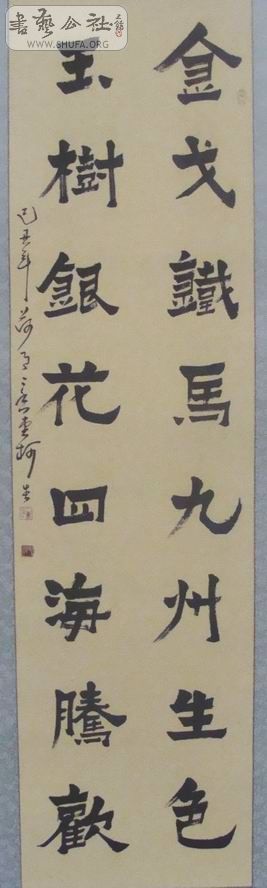 金戈鐵馬九州生色
玉樹銀花四海騰歡
己丑年荷月
書藝公社
WWW.SHUFA.ORG